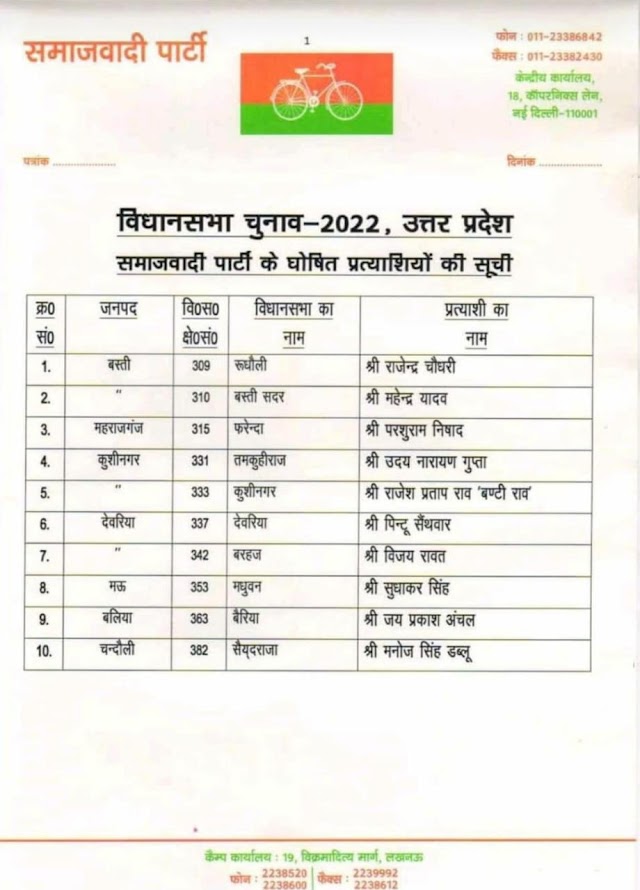 समाजवादी पार्टी
1
फोन : 011-23386842
फैक्स : 011-23382430
केन्द्रीय कार्यालय,
18, कॉपरनिक्स लेन,
नई दिल्ली-110001
पत्रांक ....................
दिनांक ....................
विधानसभा चुनाव-2022, उत्तर प्रदेश
समाजवादी पार्टी के घोषित प्रत्याशियों की सूची
क्र0 सं0 जनपद वि0स0 क्षे0सं0 विधानसभा का नाम प्रत्याशी का नाम
1. बस्ती 309 रूधौली श्री राजेन्द्र चौधरी
2. " 310 बस्ती सदर श्री महेन्द्र यादव
3. महराजगंज 315 फरेन्दा श्री परशुराम निषाद
4. कुशीनगर 331 तमकुहीराज श्री उदय नारायण गुप्ता
5. " 333 कुशीनगर श्री राजेश प्रताप राव 'बण्टी राव'
6. देवरिया 337 देवरिया श्री पिन्टू सैंथवार
7. " 342 बरहज श्री विजय रावत
8. मऊ 353 मधुवन श्री सुधाकर सिंह
9. बलिया 363 बैरिया श्री जय प्रकाश अंचल
10. चन्दौली 382 सैय्दराजा श्री मनोज सिंह डब्लू
कैम्प कार्यालय : 19, विक्रमादित्य मार्ग, लखनऊ
फोन : 2238520 2238600 फैक्स : 2239992 2238612